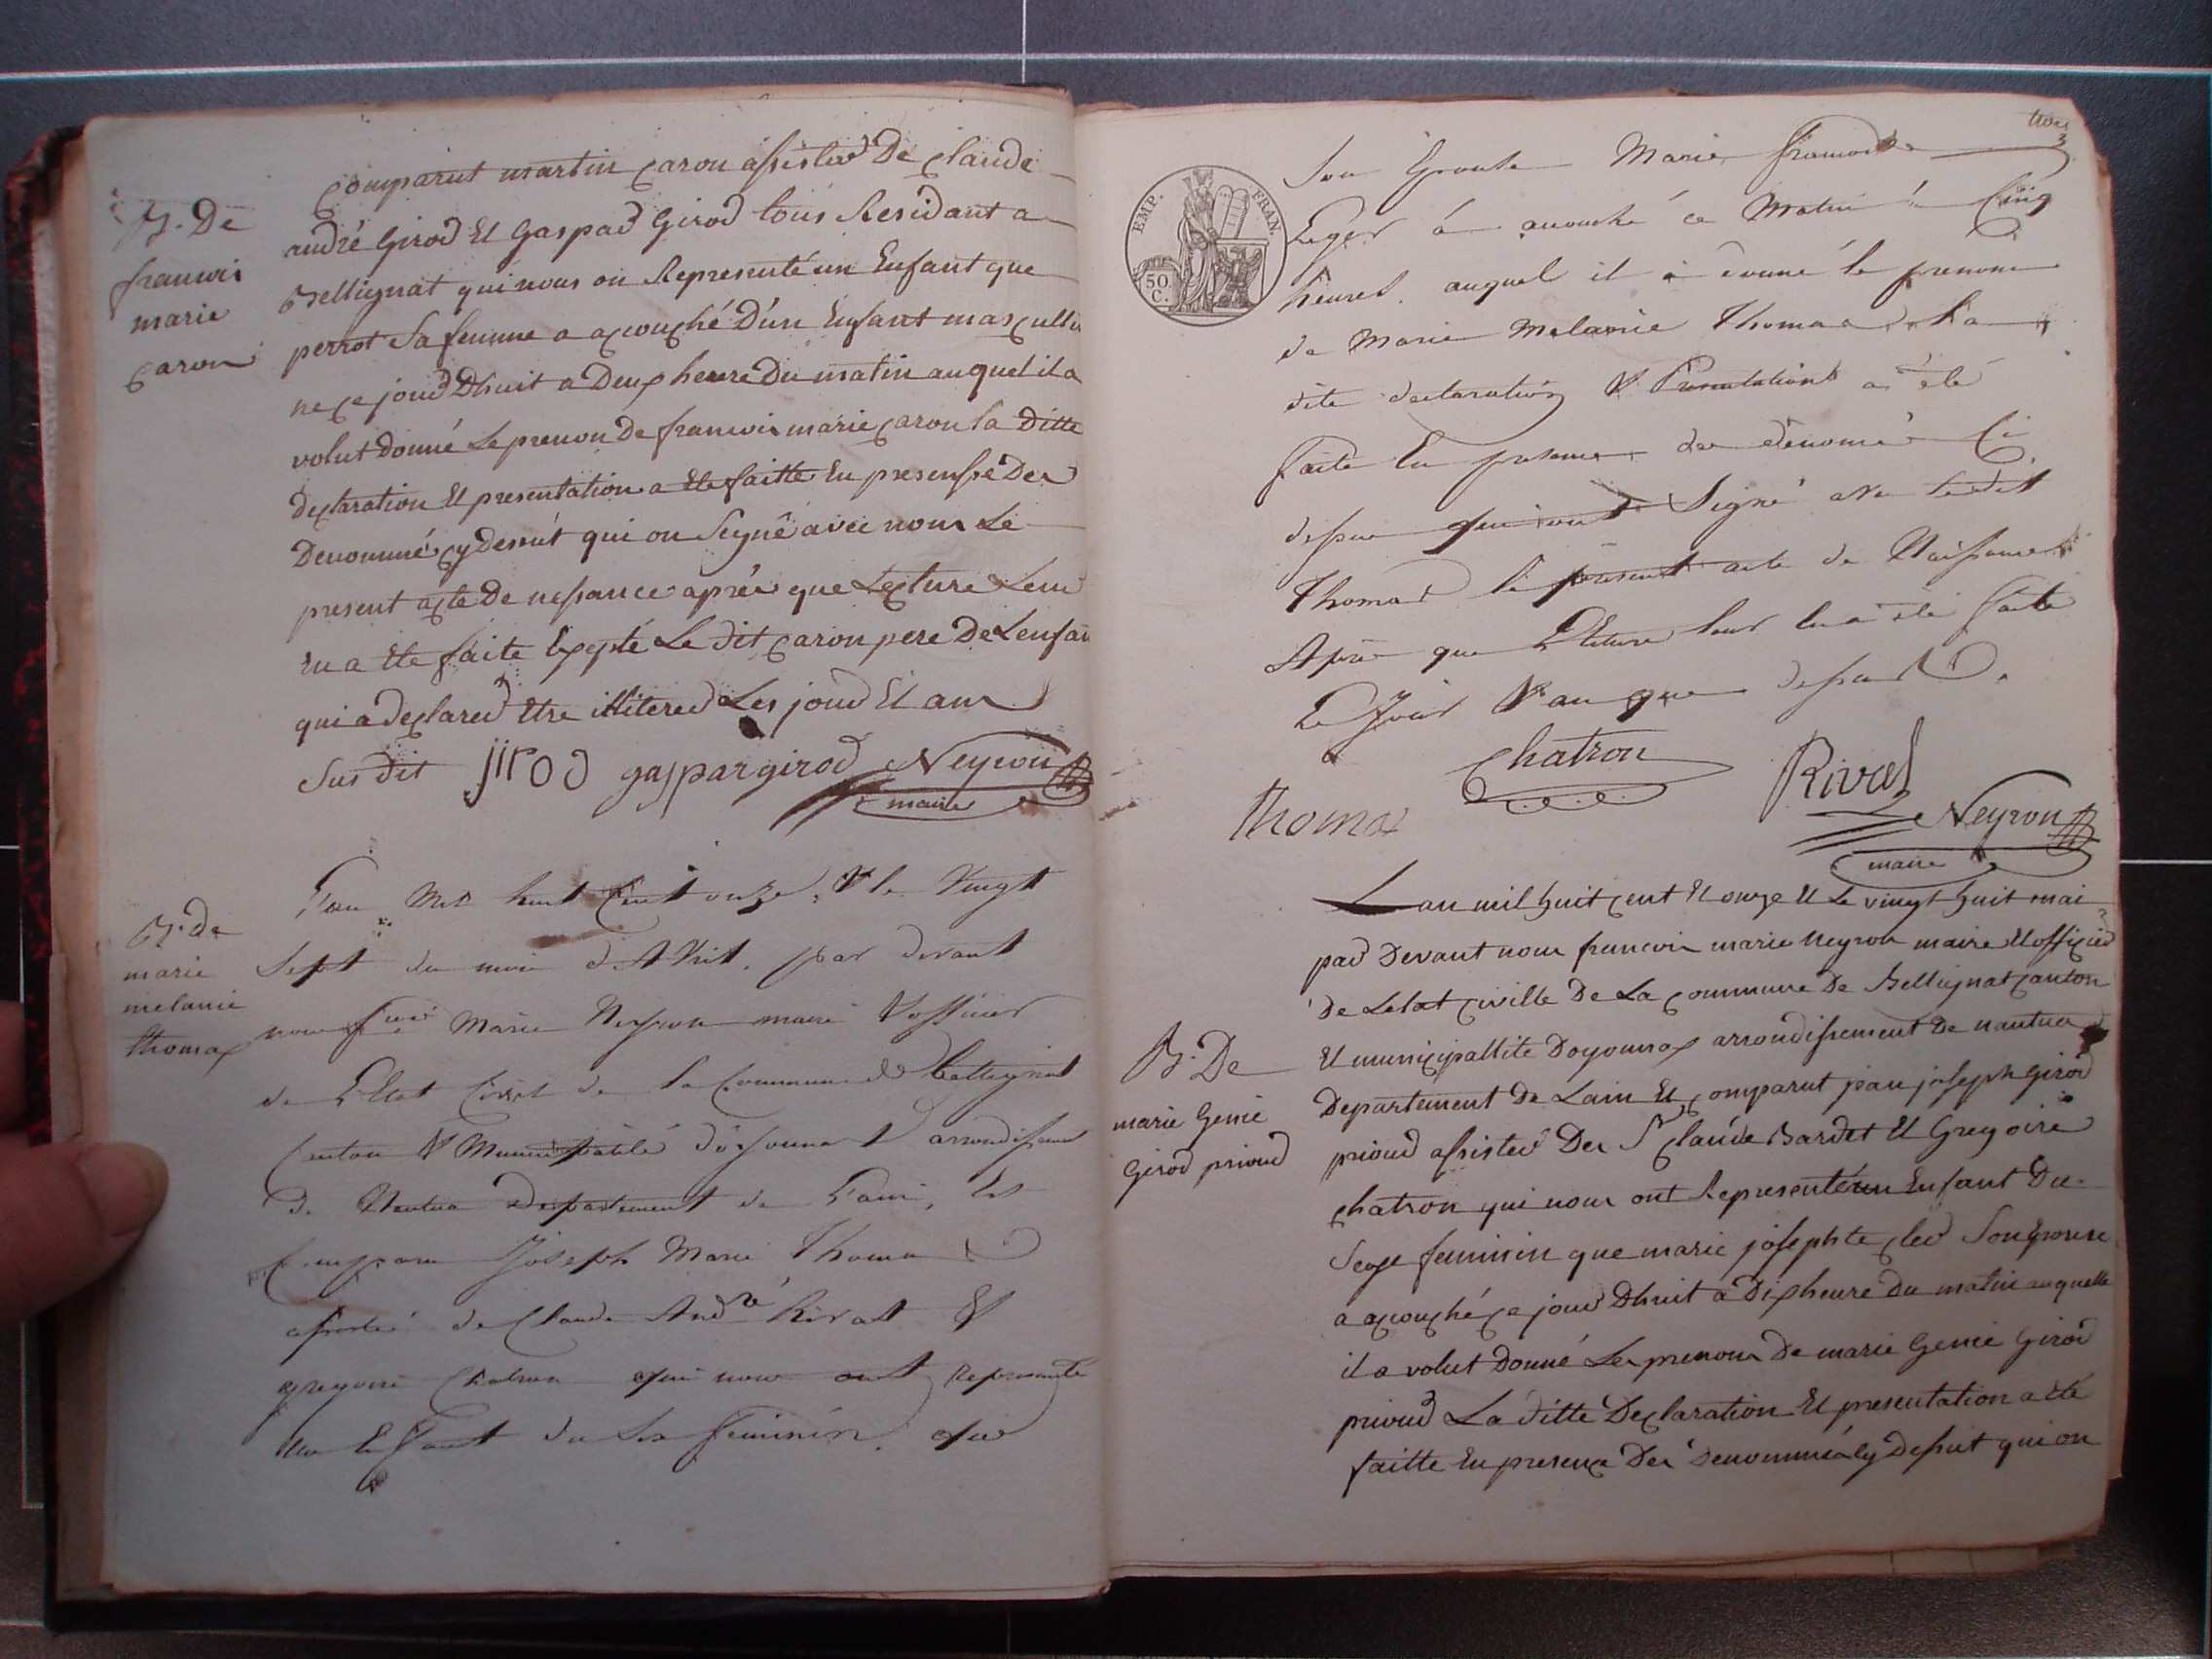 N. De
francois
marie
caron
comparut martin caron assisted De claude
andré Girod Et Gaspad Girod tous Residant a
Bellignat qui nous on Representé un Enfant que
perrot Sa femme a acouché D'un Enfant mascullin
ne ce joud Dhuit a Deux heure Du matin auquel il a
volut donné Le prenon De francois marie caron la Ditte
Declaration Et presentation a Ete faitte En presensse Des
Denommé cy Dessút qui on Signé avec nous Le
present acte De nessance aprés que Lecture Leur
En a Ete faite Exepté Le dit caron pere De Lenfan
qui a declared Etre illitered Les joud Et an
Sus dit jirod gaspargirod Neyron
maire
N. de
marie
melanie
thomas
L'an Mil huit Cent onze, & le Vingt
Sept du mois d'Avril. par devant
nous fcois Marie Neyron maire & officier
de L'Etat Civil de la Commune de Bellignat
Canton & Municipalité d'oyonnax arrondissement
de Nantua Departement de L'ain, Est
Comparu Joseph Marie Thomas
assisté de Claude André Rivat &
gregoire Chatron qui nous ont Representé
un Enfant du Sex feminin. que
trois
3
EMP. FRAN.
50
C.
Son Epouse Marie francoise
Leger á acouché ce Matin á Cinq
heures. auquel il à donné le prenom
de Marie Melanie Thomas. la
dite declaration & Presentation a été
faite En presence des dénomé Ci
dessus qui ont Signé avec le dit
Thomas le present acte de Naissance
Après que Lecture leur En a été faite
Le Jour & an que dessus.
Chatron
Rivat
Thomas
Neyron
maire
Lan mil huit cent Et onze Et Le vingt huit mai
pad Devant nous francois marie neyron maire Et officied
de Letat civille De La commune De Bellignat canton
Et municipallite Doyonnax arrondissement De nantua
N. De
marie Genie
Girod prioud
Departement De Lain Et comparut jean joseph Girod
prioud assisted Des Sr claude Bardet Et Gregoire
chatron qui nous ont Representé un Enfant Du
Sexe feminin que marie josephte cled Son Epouse
a acouché ce joud Dhuit a Dix heure du matin auquelle
il a volut Donné Les prenons De marie Genie Girod
prioud La ditte Declaration Et presentation a ete
faitte En presence Des Denommés cy Dessut qui on